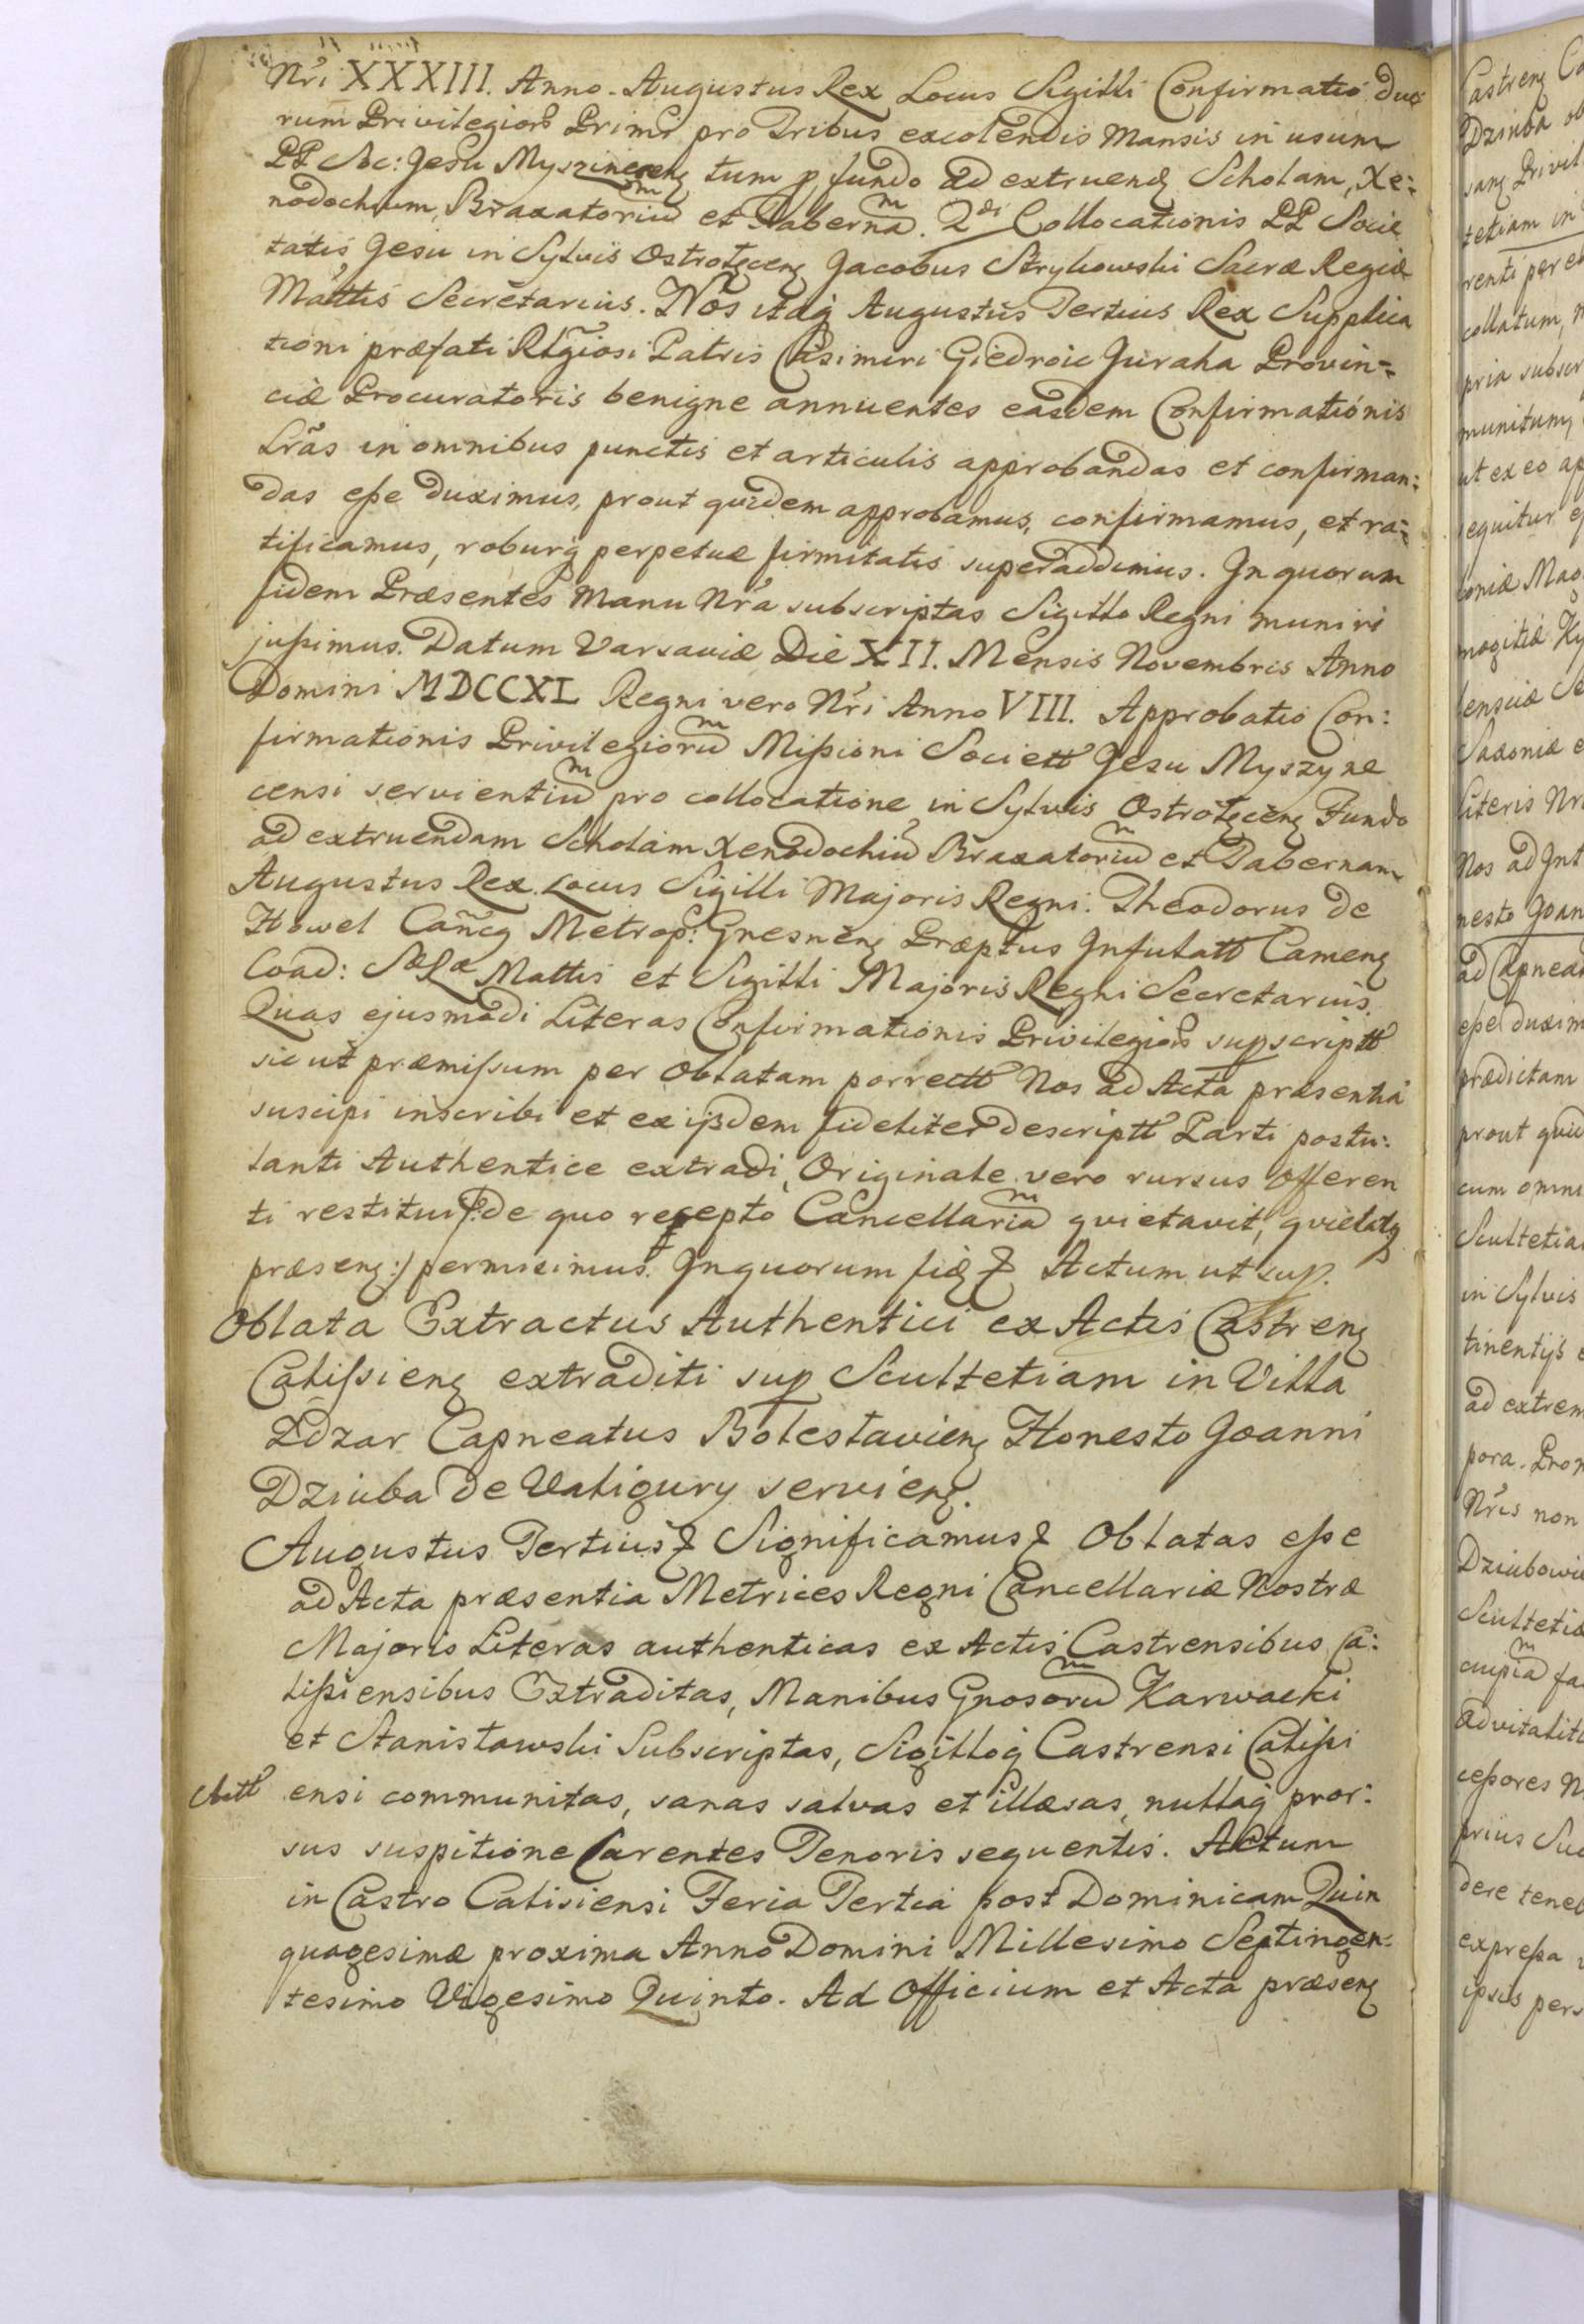 Nr̃i XXXIII. Anno. Augustus Rex Locus Sigilli Confirmatio duo
rum Privilegiorũ Primi pro Tribus excolendis Mansis in usum
PP Soc: Jesu Myszinecens tum p fundo ad extruend Scholam, Xe:
nodochium, Braxatoriũm et Tabernãm. 2di Collocationis PP Socie
tatis Jesu in Sylvis Ostrołęcens Jacobus Strykowski Sacræ Regiæ
Mattis Secretarius. Nos itaq Augustus Tertius Rex Supplica
tioni præfati Rlgiosi Patris Casimiri Giedroic Juraha Provin=
ciæ Procuratoris benigne annuentes easdem Confirmationis
Lrãs in omnibus punctis et articulis approbandas et confirman:
das eſse duximus, prout quidem approbamus, confirmamus, et ra:
tificamus, roburq perpetuæ firmitatis superaddimus. In quorum
fidem Præsentes Manu Nrã subscriptas Sigillo Regni muniri
juſsimus. Datum Varsaviæ Die XII. Mensis Novembris Anno
Domini MDCCXL Regni vero Nr̃i Anno VIII. Approbatio Con:
firmationis Privilegiorũm Miſsioni Societt Jesu Myszyne
censi servientiũm pro collocatione in Sylvis Ostrołęcens Fundo
ad extruendam Scholam Xenodochiũ Braxatoriũm et Tabernam
Augustus Rex. Locus Sigilli Majoris Regni. Theodorus de
Howel Cañcg Metrop: Gnesnens Præptus Infulatt Camens
Coad: SæRæ Mattis et Sigilli Majoris Regni Secretarius.
Quas ejusmodi Literas Confirmationis Privilegiorũ supscriptt
sicut præmiſsum per Oblatam porrectt Nos ad Acta præsentia
suscipi inscribi et ex ijsdem fideliter descriptt Parti postu:
lanti Authentice extradi, Originale vero rursus offeren
ti restitui /:de quo recepto Cancellariãm quietavit, quietatq
præsens:/ permisimus. In quorum fid & Actum ut sup.
Oblata Extractus Authentici ex Actis Castrens
Caliſsiens extraditi sup Scultetiam in Villa
Zdzar Capneatus Boleslaviens Honesto Joanni
Dziuba de Valigury serviens.
Augustus Tertius & Significamus & Oblatas eſse
ad Acta præsentia Metrices Regni Cancellariæ Nostræ
Majoris Literas authenticas ex Actis Castrensibus Ca:
liſsiensibus Extraditas, Manibus Gnosorũm Karwacki
et Stanisławski Subscriptas, Sigilloq Castrensi Caliſsi
ensi communitas, sanas salvas et illæsas, nullaq pror:
sus suspitione Carentes Tenoris sequentis. Actum
in Castro Calisiensi Feria Tertia post Dominicam Quin
quagesimæ proxima Anno Domini Millesimo Septingen:
tesimo Vigesimo Quinto. Ad Officium et Acta præsens